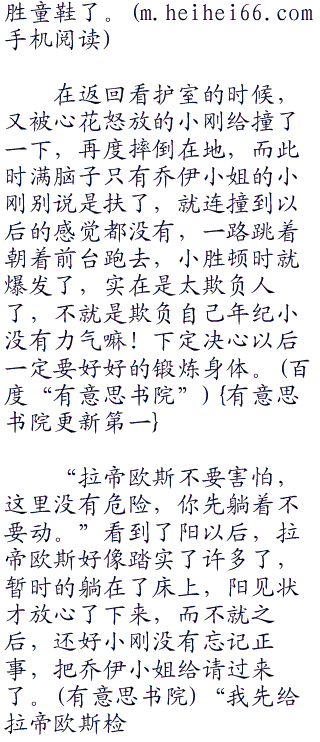 胜童鞋了。(m.heihei66.com
手机阅读)
在返回看护室的时候，
又被心花怒放的小刚给撞了
一下，再度摔倒在地，而此
时满脑子只有乔伊小姐的小
刚别说是扶了，就连撞到以
后的感觉都没有，一路跳着
朝着前台跑去，小胜顿时就
爆发了，实在是太欺负人
了，不就是欺负自己年纪小
没有力气嘛！下定决心以后
一定要好好的锻炼身体。(百
度“有意思书院”){有意思
书院更新第一}
“拉帝欧斯不要害怕，
这里没有危险，你先躺着不
要动。”看到了阳以后，拉
帝欧斯好像踏实了许多了，
暂时的躺在了床上，阳见状
才放心了下来，而不就之
后，还好小刚没有忘记正
事，把乔伊小姐给请过来
了。(有意思书院)“我先给
拉帝欧斯检